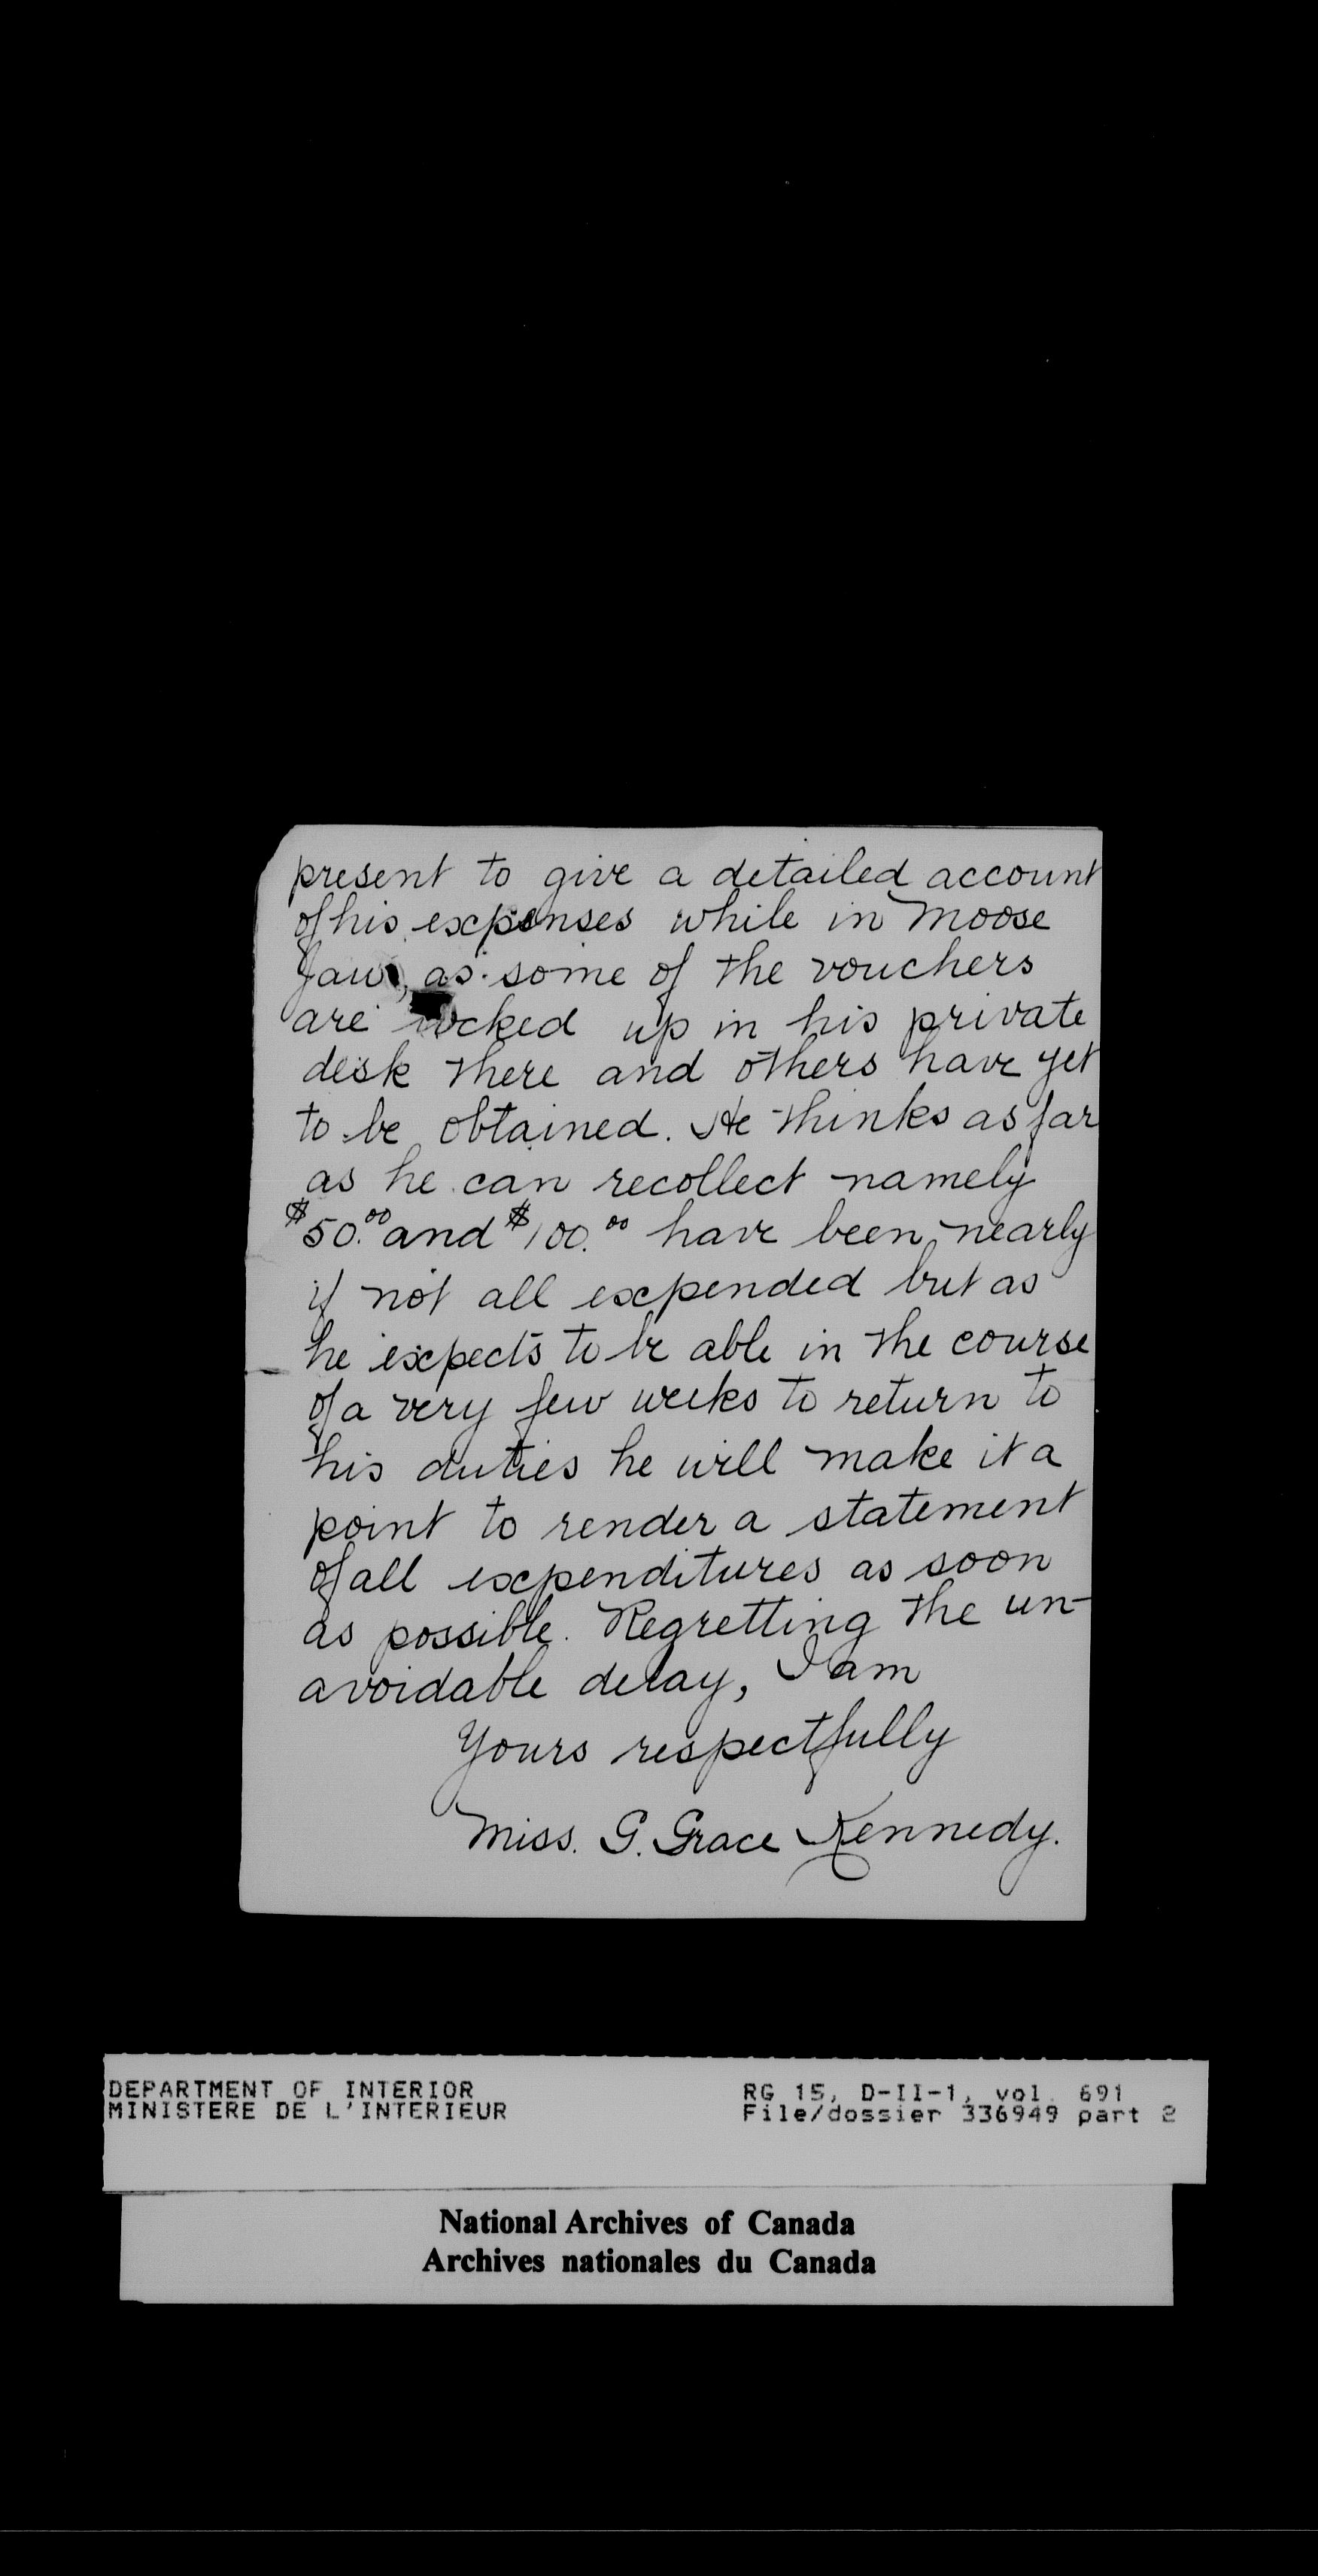 present to give a detailed account
of his expenses while in Moose
Jaw, as some of the vouchers
are locked up in his private
desk there and others have yet
to be obtained. He thinks as far
as he can recollect namely
$50.00 and $100.00 have been nearly
if not all expended but as
he expects to be able in the course
of a very few weeks to return to
his duties he will make it a
point to render a statement
of all expenditures as soon
as possible. Regretting the un-
avoidable delay, I am
Yours respectfully
Miss. G. Grace Kennedy.
DEPARTMENT OF INTERIOR
MINISTERE DE L'INTERIEUR
RG 15, D-II-1, vol. 691
File/dossier 336949 part 2
National Archives of Canada
Archives nationales du Canada